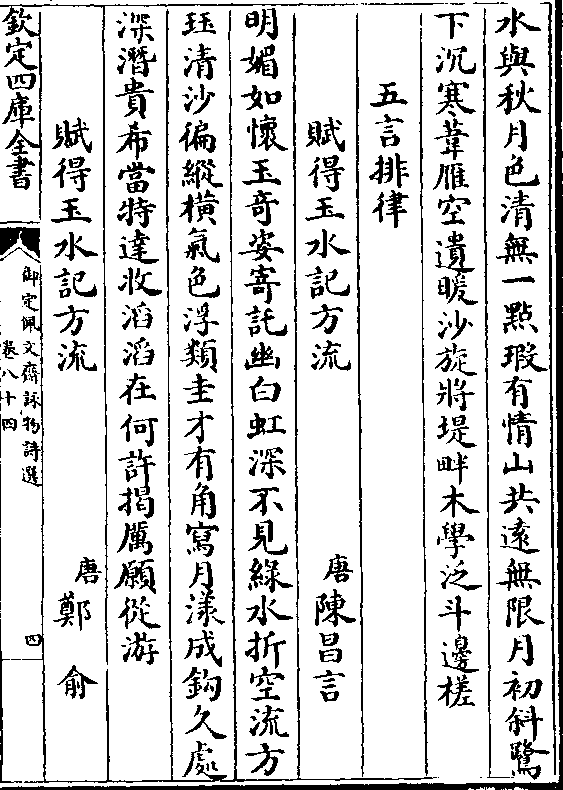 水與秋月色清無一點瑕有情山共遠無限月初斜鷺
下沉寒葦雁空遺暖沙旋將堤畔木學泛斗邊槎
五言排律
賦得玉水記方流 唐陳昌言
明媚如懷玉奇姿寄託幽白虹深不見綠水折空流方
珏清沙徧縱橫氣色浮類圭才有角寫月漾成鈎久處
深潛貴希當特達收滔滔在何許揭厲願從游
賦得玉水記方流 唐鄭俞
欽定四庫全書
御定佩文齋詠物詩選
卷八十四
四